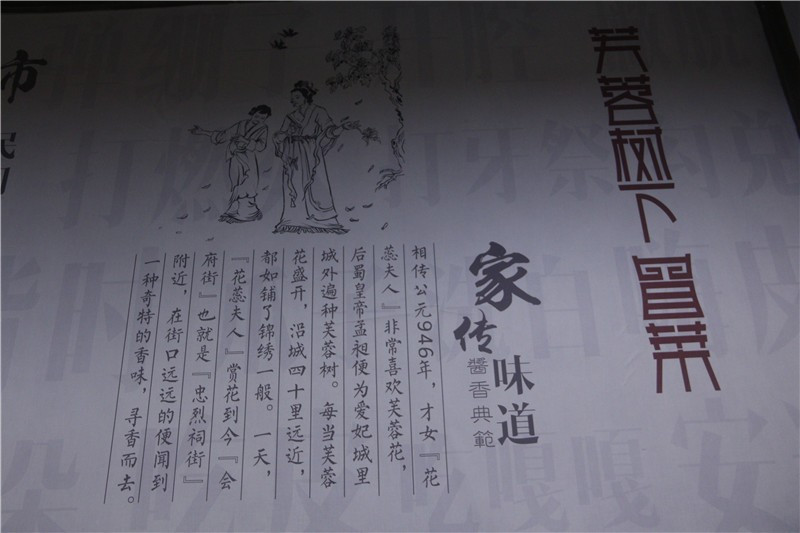 芙蓉树下 冒菜
家传
味道
醬香典範
相传公元946年，才女『花
蕊夫人』非常喜欢芙蓉花，
后蜀皇帝孟昶便为爱妃城里
城外遍种芙蓉树。每当芙蓉
花盛开，沿城四十里远近，
都如铺了锦绣一般。一天，
『花蕊夫人』赏花到今『会
府街』也就是『忠烈祠街』
附近，在街口远远的便闻到
一种奇特的香味，寻香而去。
市
打燃
打牙祭
安
吃
嘎嘎